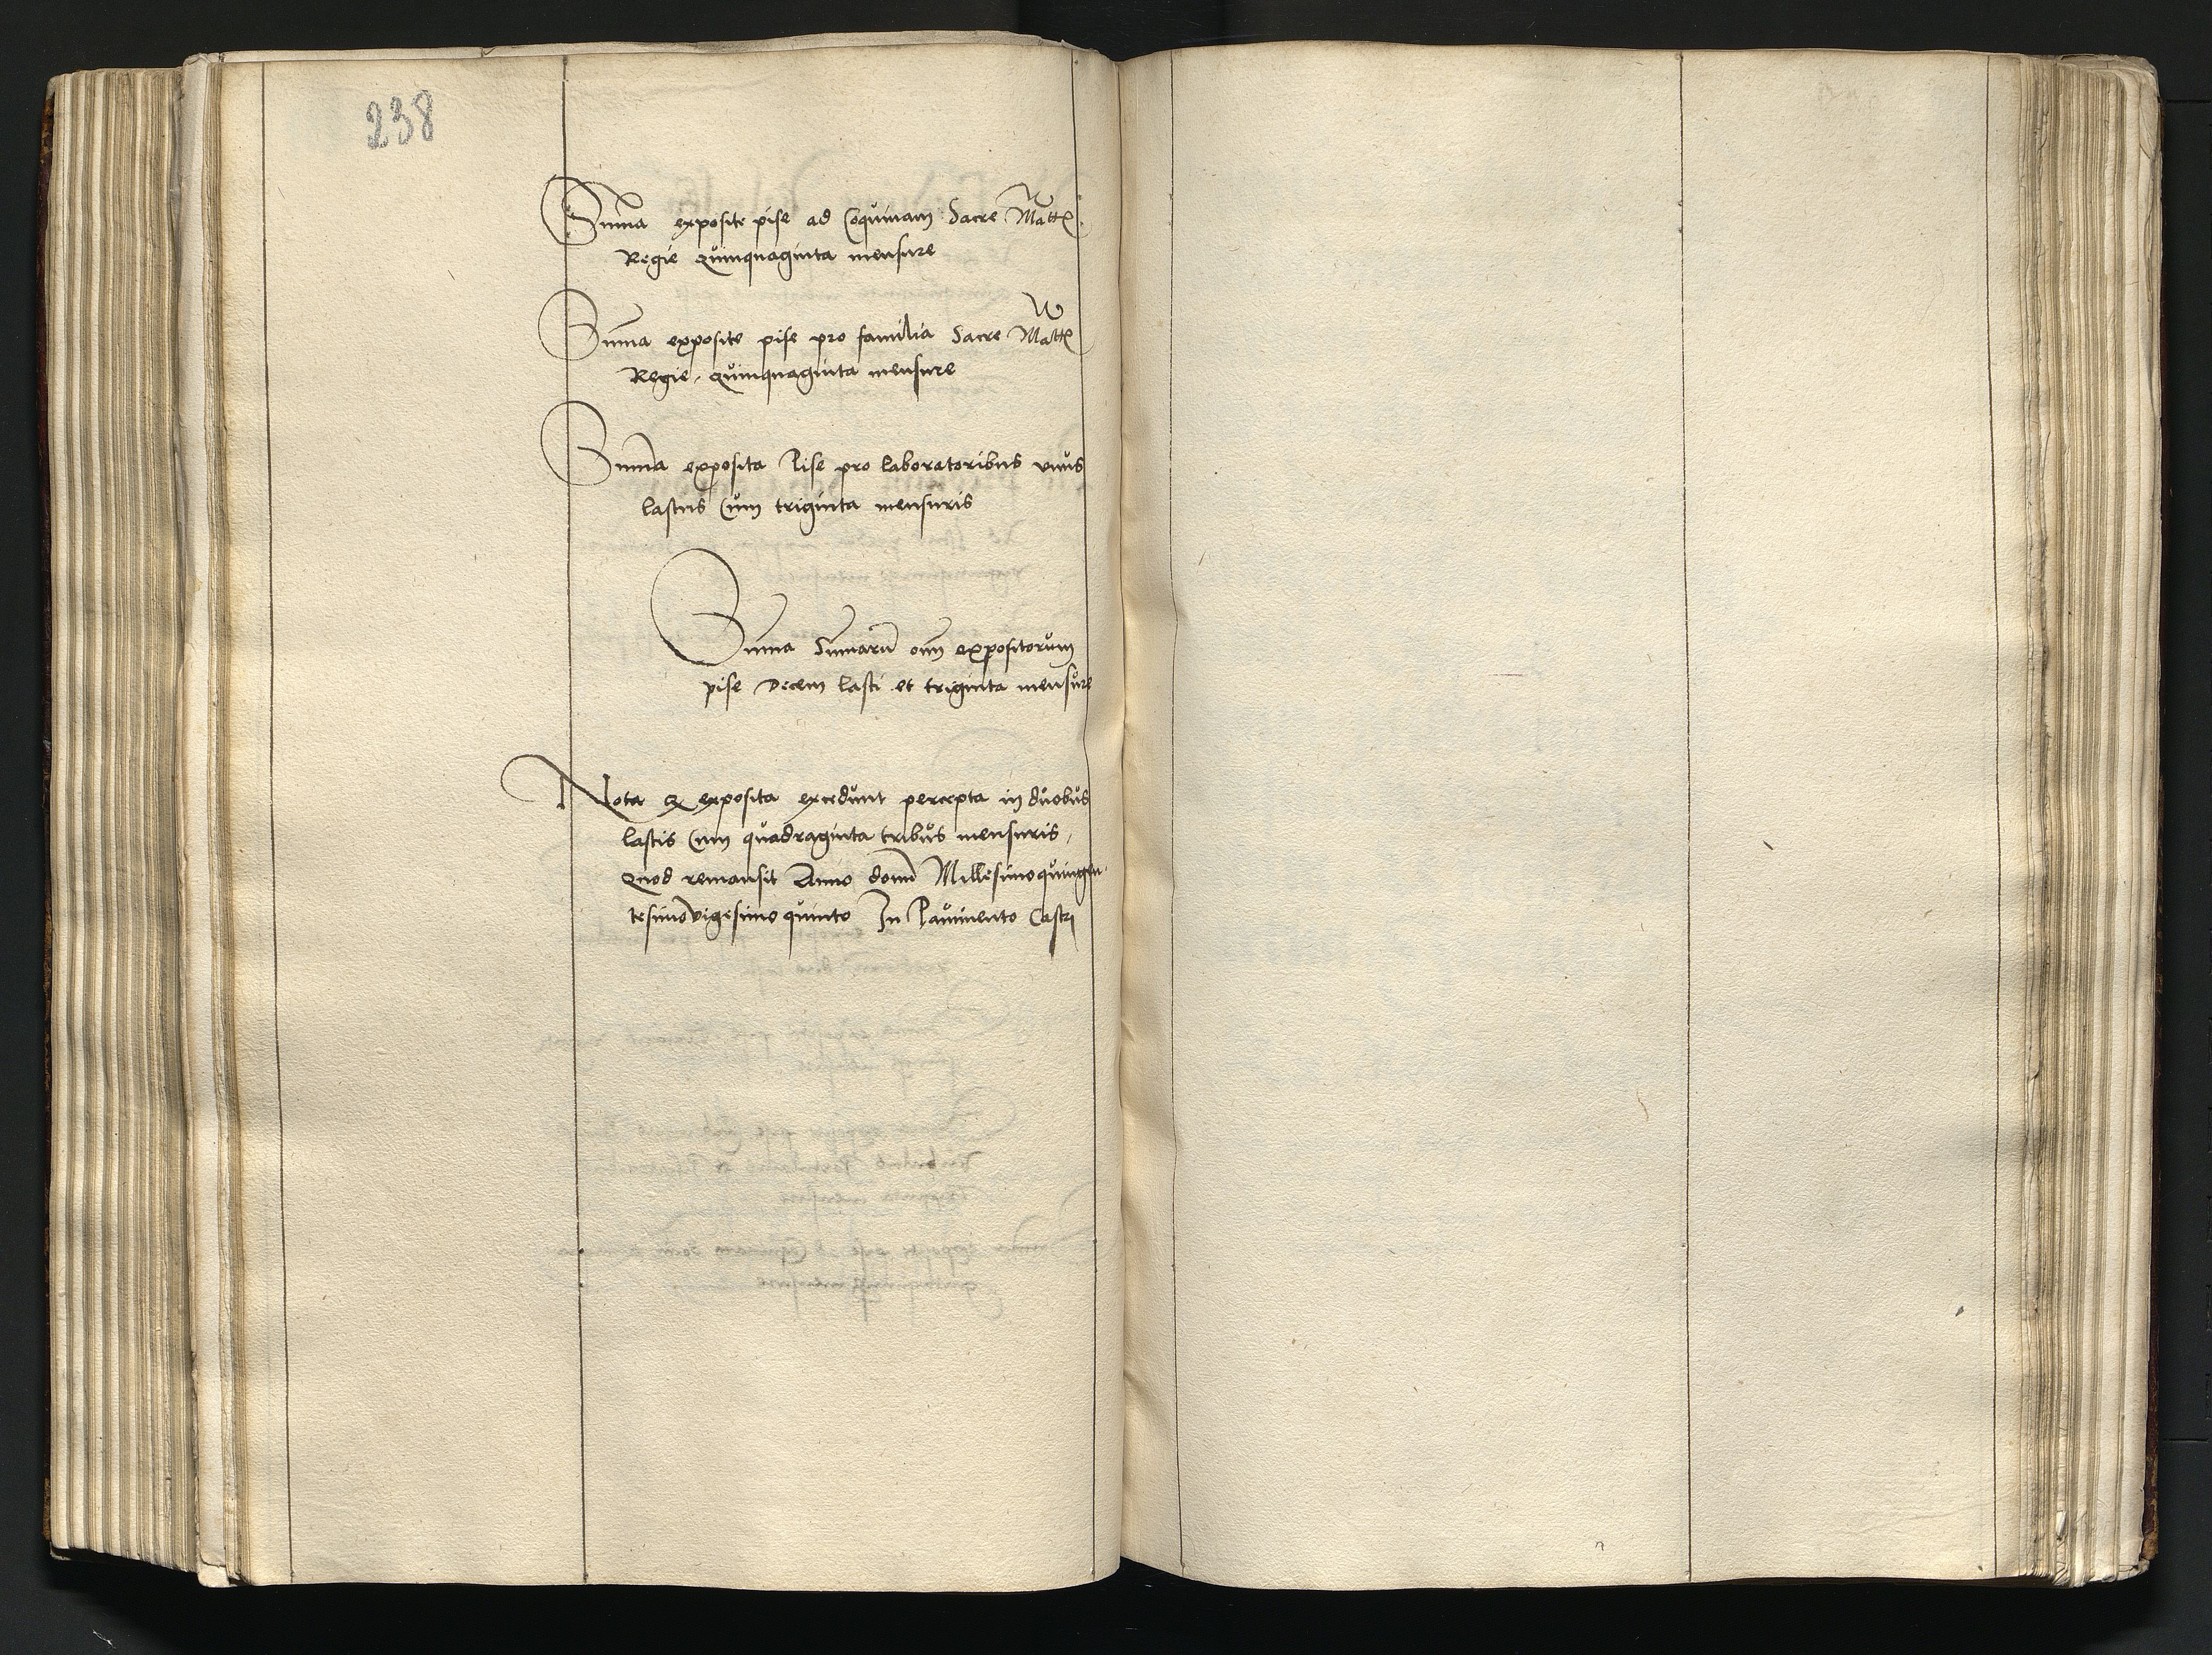 238
Sum̄a exposite pise ad Coquinam Sacre Matt̄
Regie quinquaginta mensure
Sum̄a exposite pise pro familia Sacre Matt̄
Regie, quinquaginta mensure
Sum̄a exposita Pise pro laboratoribus vnus
lastus Cum triginta mensuris
Sum̄a Sum̄arū om̄ expositorum
pise Decem lasti et triginta mensure
Nota exposita excedunt percepta in duobus
lastis Cum quadraginta tribus mensuris,
quod remansit Anno domī Millesimoquingen
tesimovigesimo quinto In Pauimento Castri